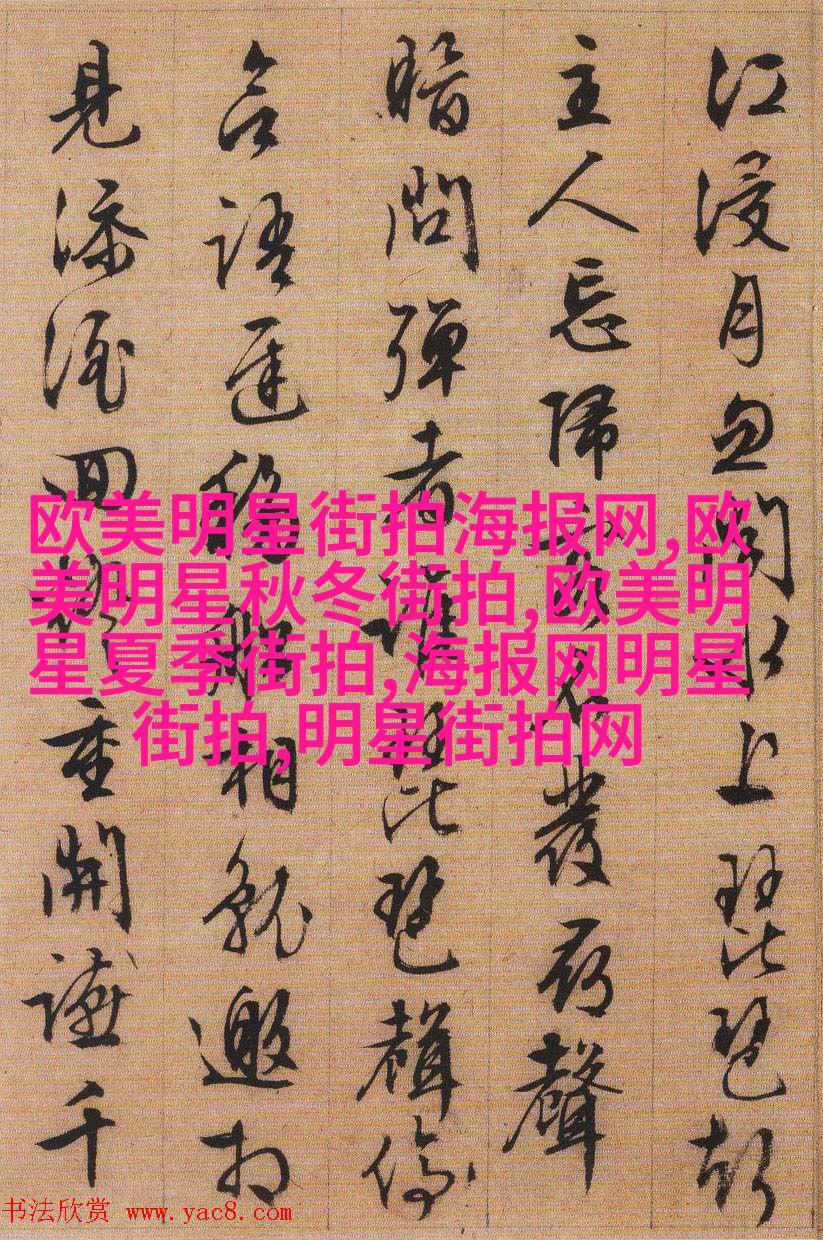 江浸月忽聞水上琵琶聲
主人忘歸客不發尋聲
暗問彈者誰琵琶聲停
欲語遲移船相近邀相
見添酒回燈重開讌千
欧美明星街拍海报网,欧
美明星秋冬街拍,欧美明
星夏季街拍,海报网明星
街拍,明星街拍网
书法欣赏 www.yac8.com